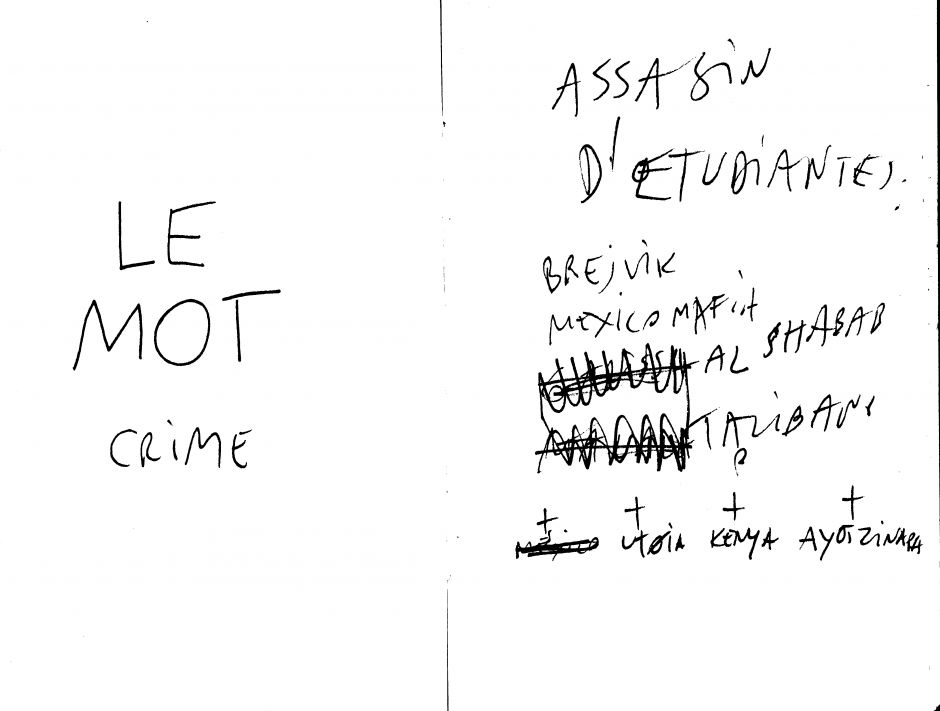 LE
MOT
CRIME
ASSASIN
D'ETUDIANTES.
BREJVIK
MEXICO MAFIA
AL SHABAB
TALIBANS
?
+ + + +
UTOIA KENYA AYOTZINAPA